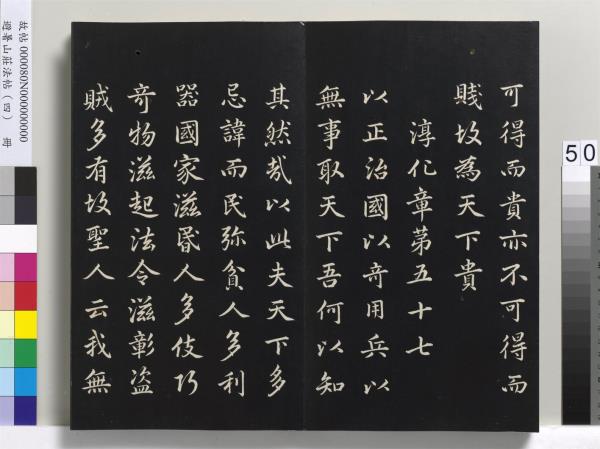 可得而貴亦不可得而
賤故為天下貴
淳化章第五十七
以正治國以奇用兵以
無事取天下吾何以知
其然哉以此夫天下多
忌諱而民弥貧人多利
器國家滋昏人多伎巧
奇物滋起法令滋彰盗
賊多有故聖人云我無
故帖 000080N000000000
避暑山莊法帖(四) 冊
50